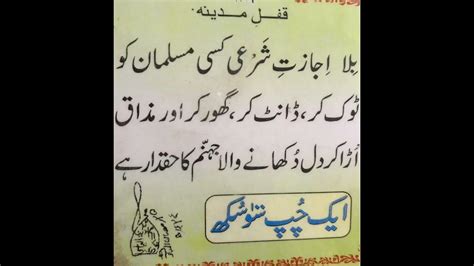 قفلِ مدینہ
بِلا اِجازتِ شَرْعی کسی مسلمان کو
ٹوک کر، ڈانٹ کر، گھور کر اور مذاق
اُڑا کر دل دُکھانے والا جہنّم کا حقدار ہے
ایک چُپ سَو سُکھ